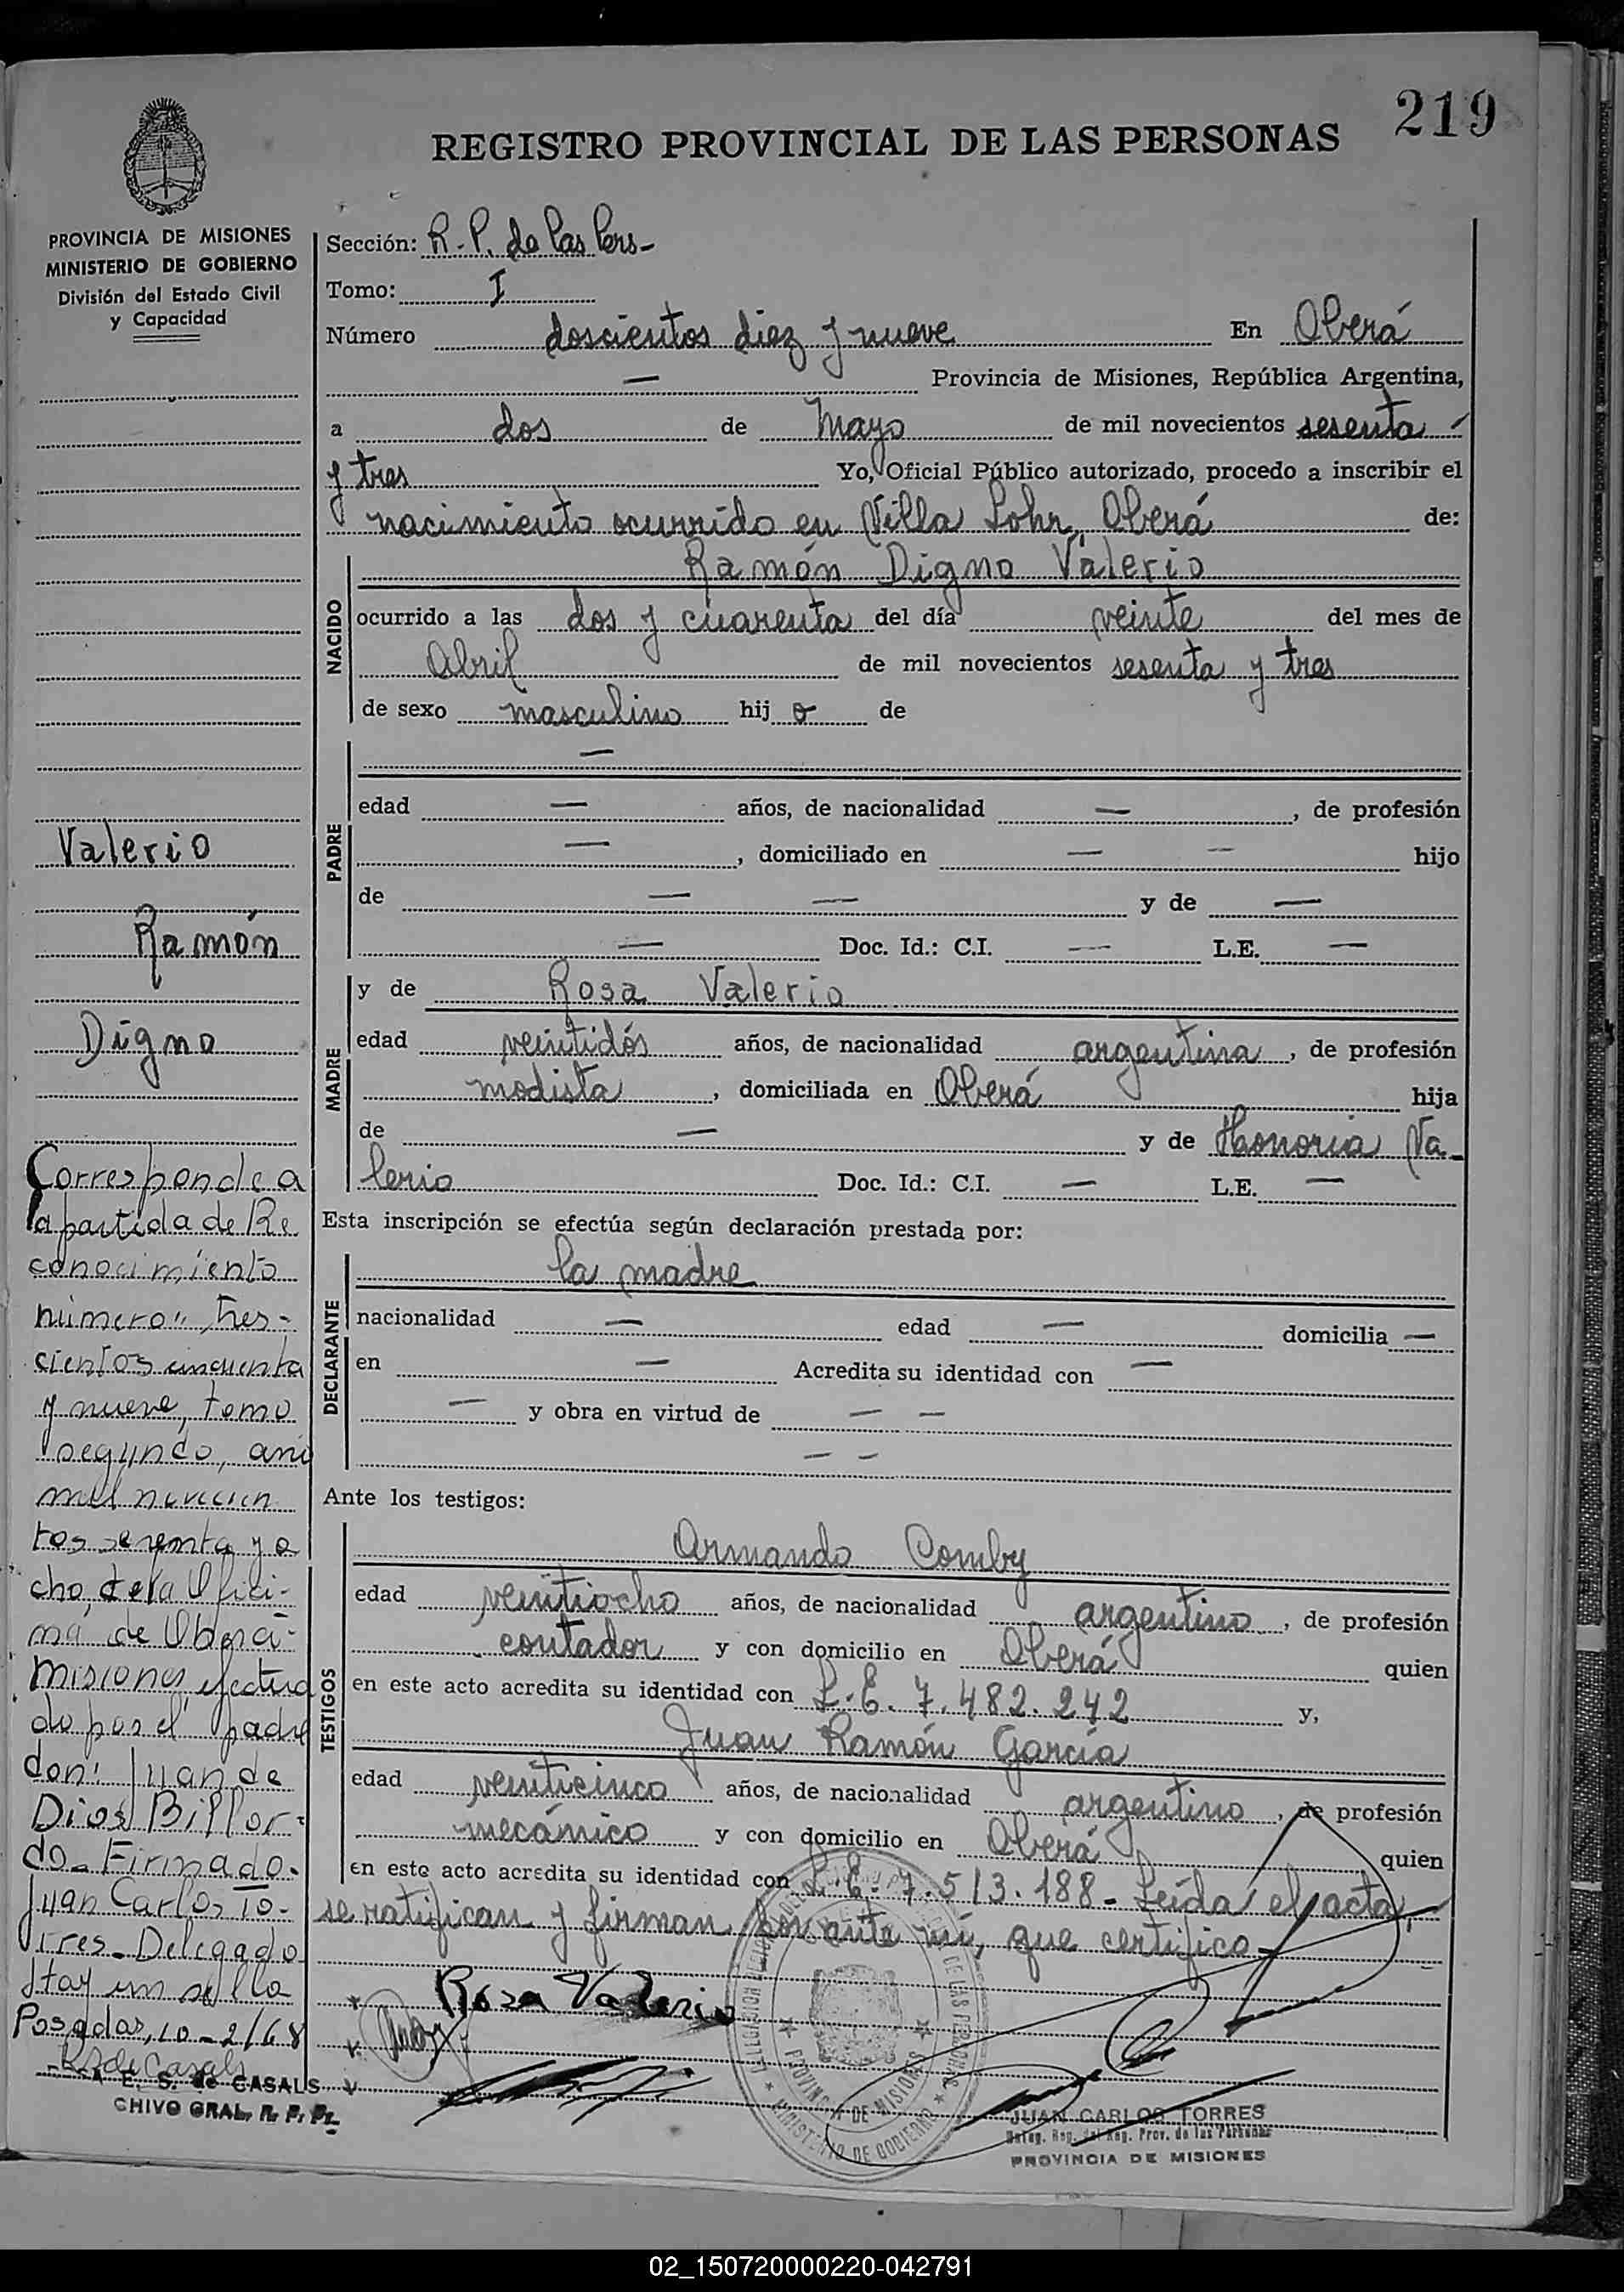 219
REGISTRO PROVINCIAL DE LAS PERSONAS
PROVINCIA DE MISIONES
MINISTERIO DE GOBIERNO
División del Estado Civil
y Capacidad
Sección: R.P. de las Pers-
Tomo: I
Número doscientos diez y nueve En Oberá
— Provincia de Misiones, República Argentina,
a dos de Mayo de mil novecientos sesenta
y tres Yo, Oficial Público autorizado, procedo a inscribir el
nacimiento ocurrido en Villa Lohr, Oberá de:
NACIDO
Ramón Digno Valerio
ocurrido a las dos y cuarenta del día veinte del mes de
Abril de mil novecientos sesenta y tres
de sexo masculino hij o de
PADRE
—
edad — años, de nacionalidad — , de profesión
— , domiciliado en — — hijo
de — — y de —
— Doc. Id.: C.I. — L.E. —
MADRE
y de Rosa Valerio
edad veintidós años, de nacionalidad argentina , de profesión
modista , domiciliada en Oberá hija
de — y de Honoria Va-
lerio Doc. Id.: C.I. — L.E. —
Esta inscripción se efectúa según declaración prestada por:
DECLARANTE
la madre
nacionalidad — edad — domicilia —
en — Acredita su identidad con —
— y obra en virtud de — —
— —
Ante los testigos:
TESTIGOS
Armando Comby
edad veintiocho años, de nacionalidad argentino , de profesión
contador y con domicilio en Oberá quien
en este acto acredita su identidad con L.E. 7.482.242 y,
Juan Ramón García
edad veinticinco años, de nacionalidad argentino , de profesión
mecánico y con domicilio en Oberá quien
en este acto acredita su identidad con L.E. 7.513.188 - Leída el acta,
se ratifican y firman por ante mí, que certifico-
Rosa Valerio
JUAN CARLOS TORRES
PROVINCIA DE MISIONES
MINISTERIO DE GOBIERNO
PROVINCIA DE MISIONES
Valerio
Ramón
Digno
Corresponde a
la partida de Re
conocimiento
número " tres-
cientos cincuenta
y nueve, tomo
segundo, año
mil novecien
tos sesenta y o
cho, de la Ofici-
na de Oberá-
Misiones, efectua
do por el padre
don: Juan de
Dios Billor-
do- Firmado.
Juan Carlos To-
rres- Delegado
Hay un sello
Posadas, 10-2/68
E. S. de CASALS
CHIVO GRAL. R. P. Ps.
02_150720000220-042791